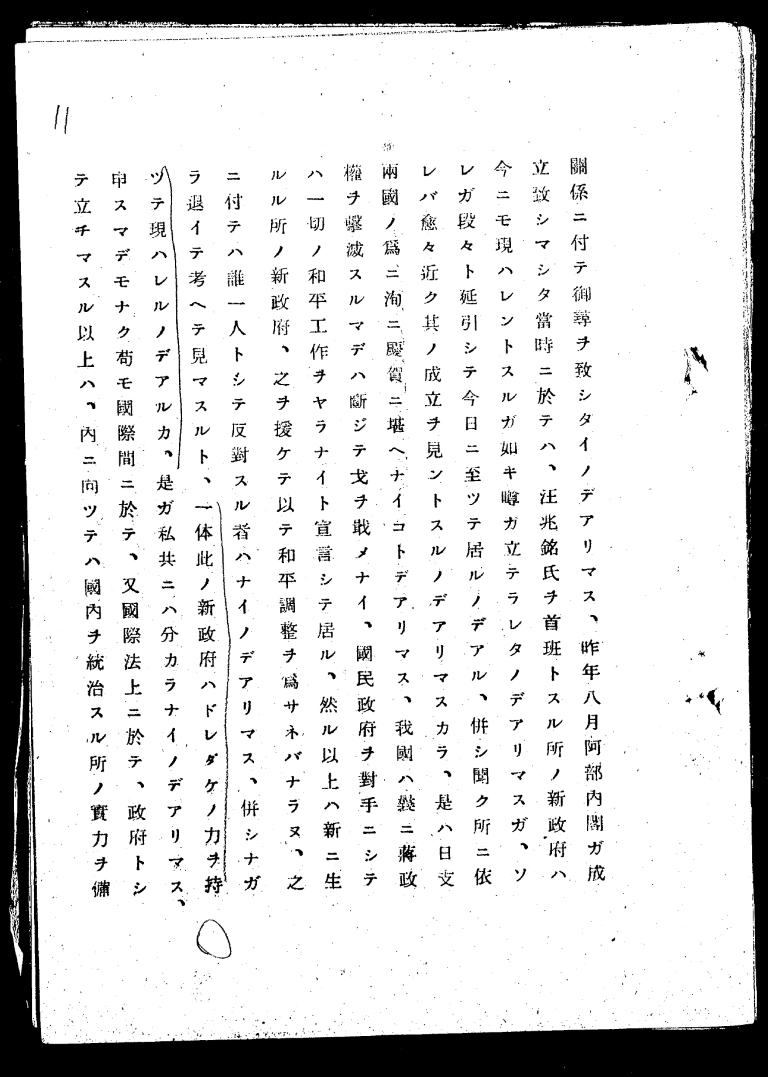 11
關係ニ付テ御尋ヲ致シタイノデアリマス、昨年八月阿部內閣ガ成
立致シマシタ當時ニ於テハ、汪兆銘氏ヲ首班トスル所ノ新政府ハ
今ニモ現ハレントスルガ如キ噂ガ立テラレタノデアリマスガ、ソ
レガ段々ト延引シテ今日ニ至ツテ居ルノデアル、併シ聞ク所ニ依
レバ愈々近ク其ノ成立ヲ見ントスルノデアリマスカラ、是ハ日支
兩國ノ爲ニ洵ニ慶賀ニ堪ヘナイコトデアリマス、我國ハ曩ニ蔣政
權ヲ擊滅スルマデハ斷ジテ戈ヲ戢メナイ、國民政府ヲ對手ニシテ
ハ一切ノ和平工作ヲヤラナイト宣言シテ居ル、然ル以上ハ新ニ生
ルル所ノ新政府、之ヲ援ケテ以テ和平調整ヲ爲サネバナラヌ、之
ニ付テハ誰一人トシテ反對スル者ハナイノデアリマス、併シナガ
ラ退イテ考ヘテ見マスルト、一体此ノ新政府ハドレダケノ力ヲ持
ツテ現ハレルノデアルカ、是ガ私共ニハ分カラナイノデアリマス、
申スマデモナク苟モ國際間ニ於テ、又國際法上ニ於テ、政府トシ
テ立チマスル以上ハ、內ニ向ツテハ國內ヲ統治スル所ノ實力ヲ備